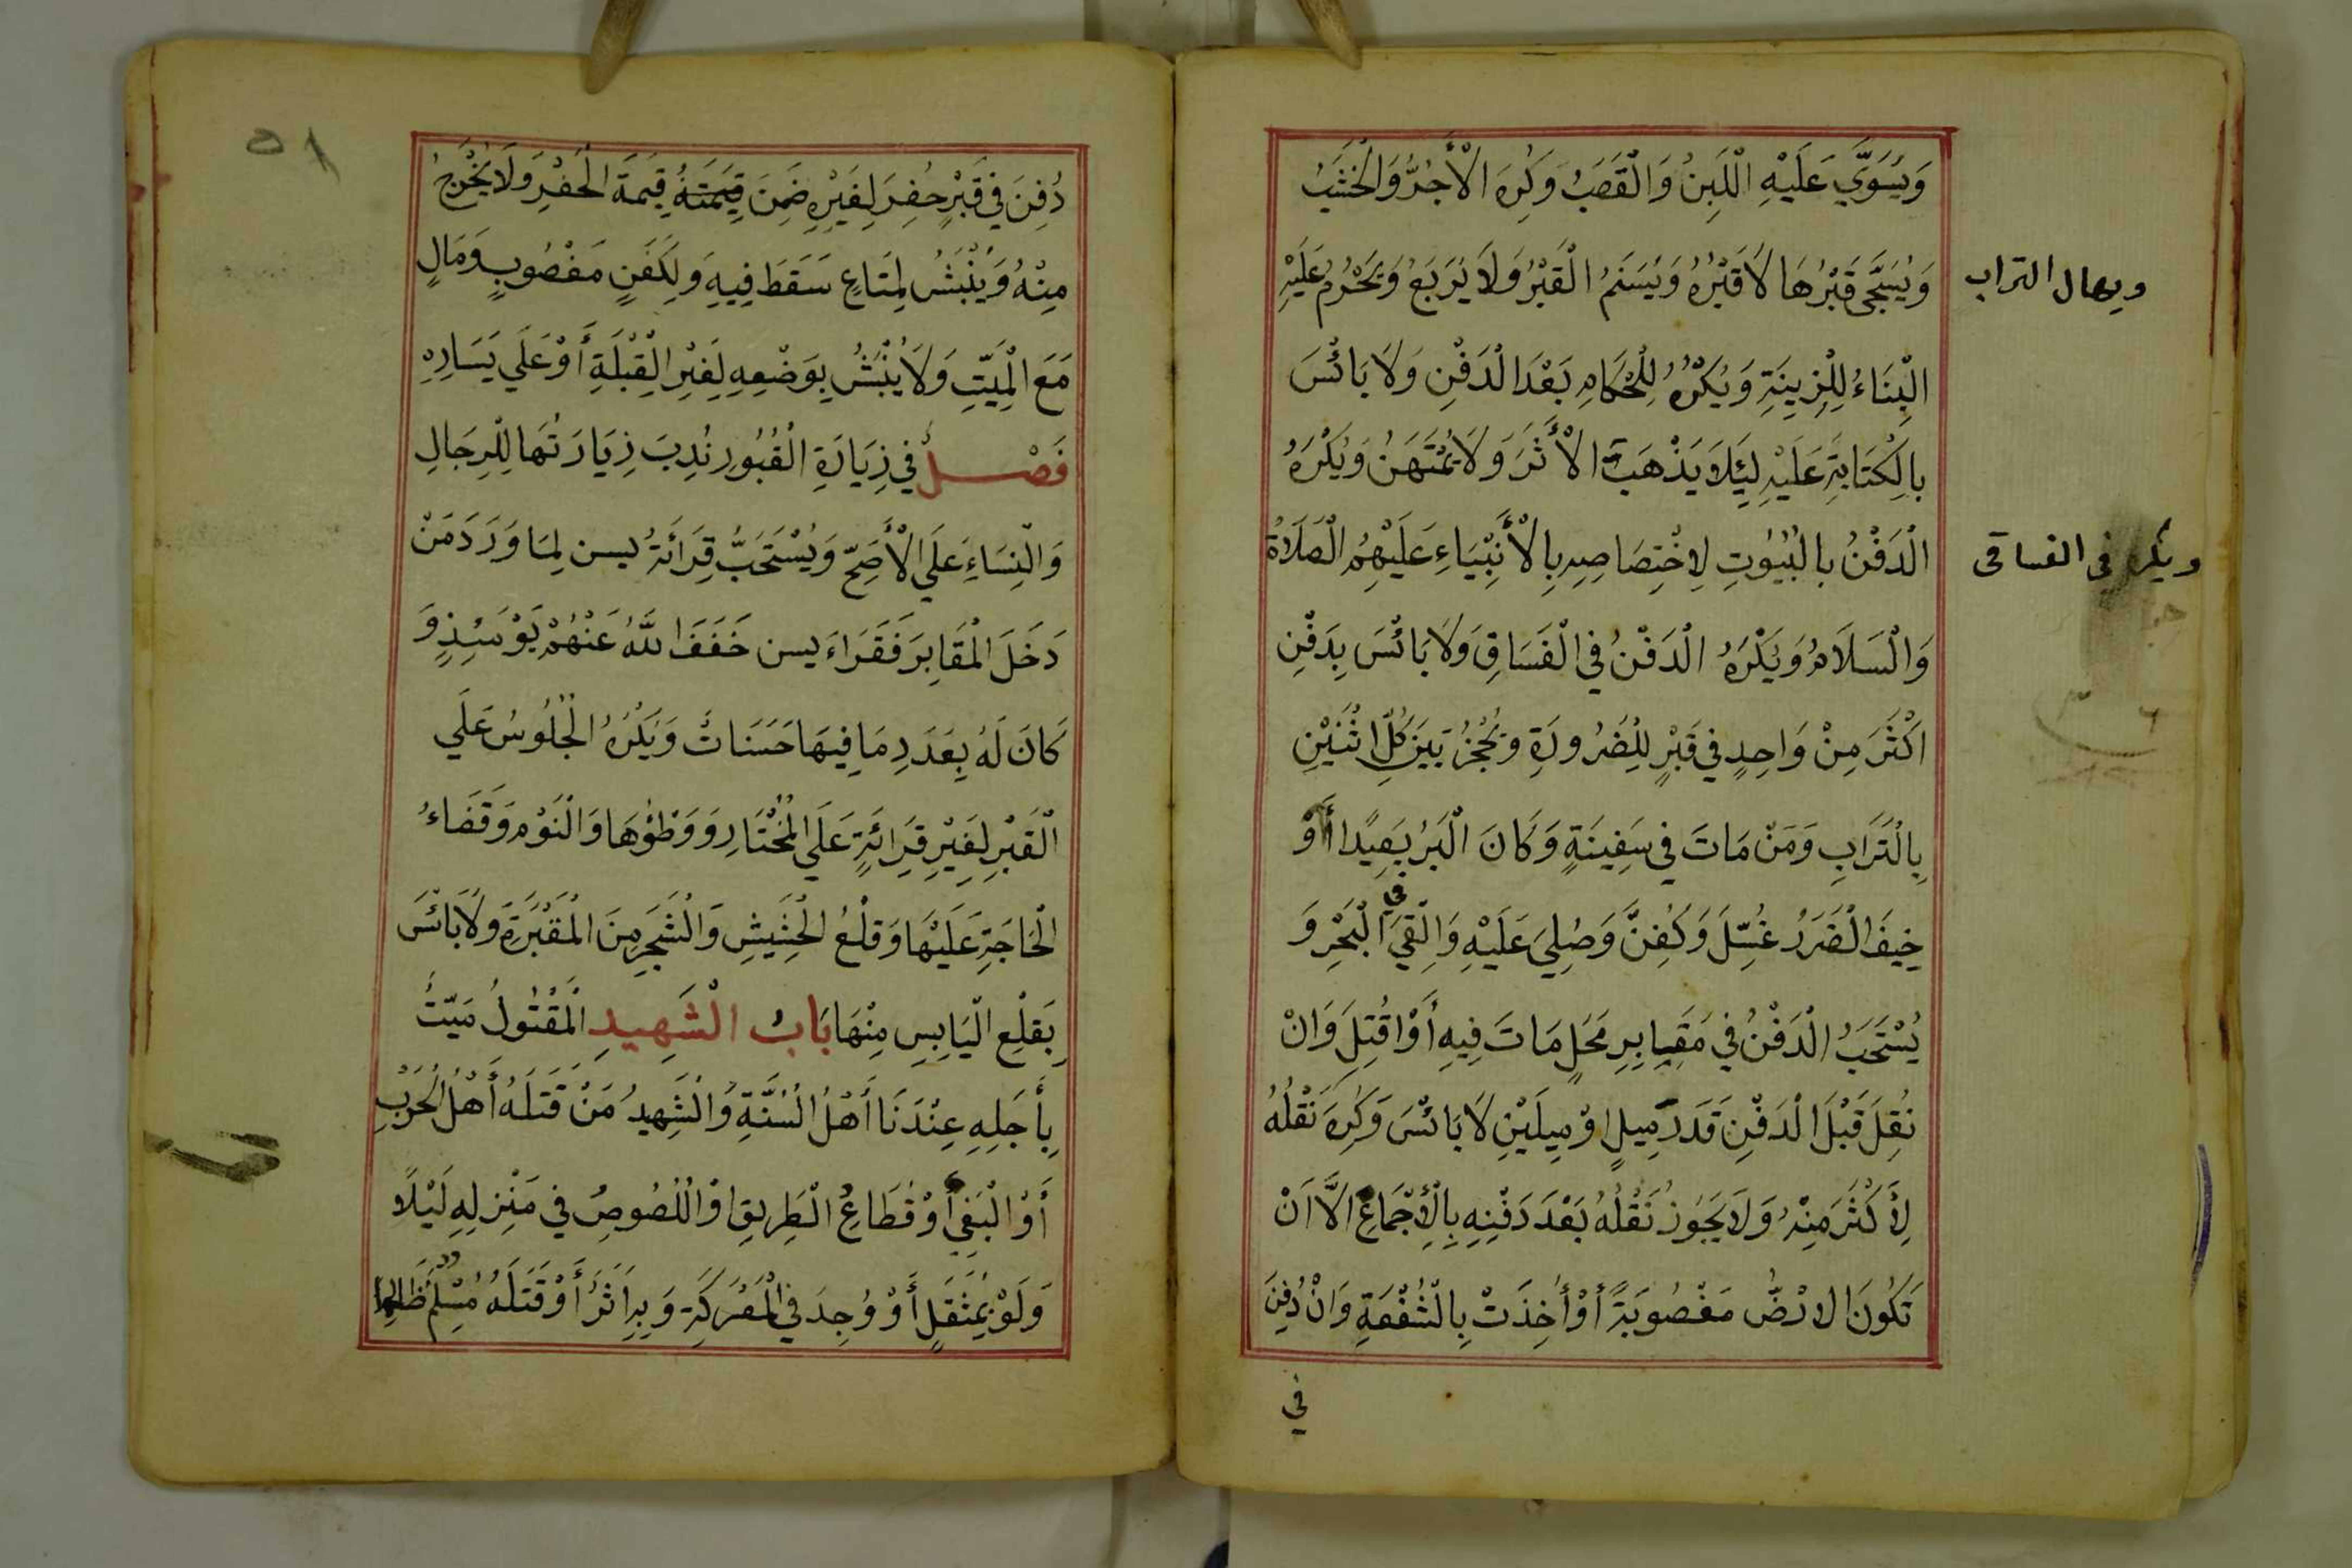 وَيُسَوَّي عَلَيْهِ الْلَبِنُ وَالْقَصَبُ وَكُرِهَ الْأَجُرُّ وَالْخَشَبُ
وَيُسَجَّى قَبْرُهَا لَا قَبْرُهُ وَيُسَنَمُ الْقَبْرُ وَلَا يُرَبَعُ وَيَحْرُمُ عَلَيْهِ
ويهال التراب
الْبِنَاءُ لِلْزِينَةِ وَيُكْرَهُ لِلْحْكَامِ بَعْدَ الْدَفْنِ وَلَا بَائْسَ
بِالِكْتَابَةِ عَلَيْهِ لِئَلَا يَذْهَبَ الْأَثَرَ وَلَا يُمْتَهَنُ وَيُكْرَهُ
الْدَفْنُ بِالْبُيُوتِ لِاخْتِصَاصِهِ بِالْأَنْبِيَاءِ عَلَيْهِمُ الْصَلَاةُ
ويكره في الفساقى
وَالْسَلَامُ وَيُكْرَهُ الْدَفْنُ فِي الْفَسَاقِ وَلَا بَائْسَ بِدَفْنِ
اكْثَرَ مِنْ وَاحِدٍ فِي قَبْرٍ لِلْضَرُورَةِ وَيُحْجَزُ بَيْنَ كُلِّ اثْنَيْنِ
بِالْتَرَابِ وَمَنْ مَاتَ فِي سَفِينَةٍ وَكَانَ الْبَرُ بَعِيدًا أَوْ
خِيفَ الْضَرَرُ غُسِّلَ وَكُفِنَّ وَصُلِيَ عَلَيْهِ وَالْقِيَ في الْبَحْرِ وَ
يُسْتَحَبُ الْدَفْنُ فِي مَقَابِرِ مَحَلٍ مَاتَ فِيهِ أَوْ قُتِلَ وَانْ
نُقِلَ قَبْلَ الْدَفْنِ قَدَرَ مِيلٍ اوْ مِيلَيْنِ لَا بَائْسَ وَكُرِهَ نَقْلُهُ
لِأَكْثَرَ مِنْهُ وَلَا يَجُوزُ نَقْلُهُ بَعْدَ دَفْنِهِ بِالْأَجْمَاعِ الَّا انْ
تَكُونَ الارْضُ مَغْصُوبَةً أَوْ أُخِذَتْ بِالْشُفْعَةِ وَانْ دُفِنَ
في
٥١
دُفِنَ فِي قَبْرٍ حُفِرَ لِغَيْرِهِ ضَمِنَ قِيمَتَهُ قِيمَةَ الْحَفْرِ وَلَا يُخْرَجُ
مِنْهُ وَيُنْبَشُ لِمَتَاعٍ سَقَطَ فِيهِ وَلِكَفَنٍ مَغْصُوبٍ وَمَالٍ
مَعَ الْمَيِّتِ وَلَا يُنْبَشُ بِوَضْعِهِ لِغَيْرِ الْقِبْلَةِ أَوْ عَلَي يَسَارِهِ
فَصْلٌ فِي زِيَارَةِ الْقُبُورِ نُدِبَ زِيَارَتُهَا لِلْرِجَالِ
وَالْنِسَاءِ عَلَي الْأَصَحّ وَيُسْتَحَبُّ قِرَائَةُ يسن لِمَا وَرَدَ مَنْ
دَخَلَ الْمَقَابِرَ فَقَرَاءَ يسن خَفَفَ اللهُ عَنْهُمْ يَوْمَئِذٍ وَ
كَانَ لَهُ بِعَدَدِ مَا فِيهَا حَسَنَاتٌ وَيُكْرَهُ الْجُلُوسُ عَلَي
الْقَبْرِ لِغَيْرِ قِرَائَةٍ عَلَي الْمُخْتَارِ وَوَطْؤهَا وَالْنَوْمُ وَقَضَاءُ
الْحَاجَةِ عَلَيْهَا وَقَلْعُ الْحَشِيشِ وَالْشَجَرِ مِنَ الْمَقْبَرَةِ وَلَا بَائْسَ
بِقَلْعِ الْيَابِسِ مِنْهَا بَابُ الْشَهِيدِ الْمَقْتُولُ مَيّتٌ
بِأَجَلِهِ عِنْدَنَا أَهْلُ الْسُنَّةِ وَالْشَهِيدُ مَنْ قَتَلَهُ أَهْلُ الْحَرْبِ
أَوْ الْبَغِي أَوْ قُطَاعُ الْطَرِيقِ اوْ الْلُصُوصُ فِي مَنْزِلِهِ لَيْلًا
وَلَوْ بِمُثَقَلٍ أَوْ وُجِدَ فِي الْمَعْرَكَةِ وَبِهِ اَثَرٌ أَوْ قَتَلَهُ مُسْلِمٌ ظَالِما